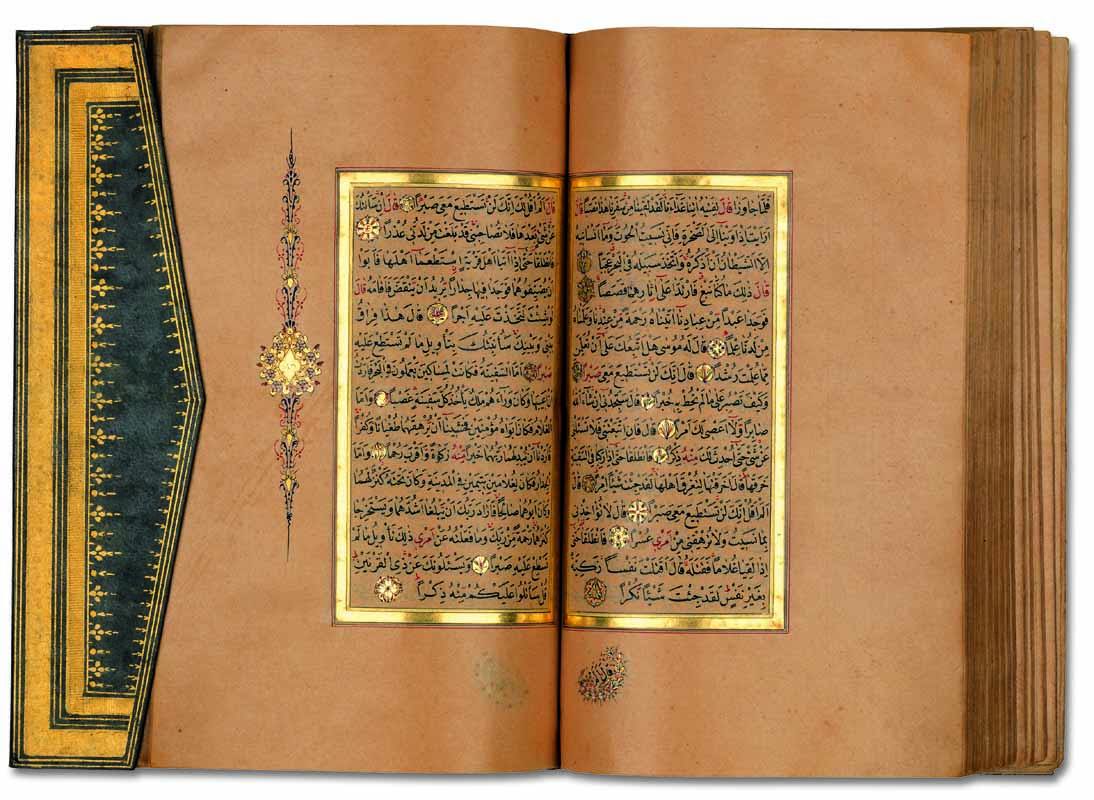 فَلَمَّا جَاوَزَا قَالَ لِفَتٰيهُ اٰتِنَا غَدَاءَنَا لَقَدْ لَقِينَا مِنْ سَفَرِنَا هٰذَا نَصَبًا قَالَ
اَرَاَيْتَ اِذْ اَوَيْنَا اِلَى الصَّخْرَةِ فَاِنِّي نَسِيتُ الْحُوتَ وَمَا اَنْسَانِيهُ
اِلَّا الشَّيْطَانُ اَنْ اَذْكُرَهُ وَاتَّخَذَ سَبِيلَهُ فِي الْبَحْرِ عَجَبًا
قَالَ ذٰلِكَ مَا كُنَّا نَبْغِ فَارْتَدَّا عَلٰى اٰثَارِهِمَا قَصَصًا
فَوَجَدَا عَبْدًا مِنْ عِبَادِنَا اٰتَيْنَاهُ رَحْمَةً مِنْ عِنْدِنَا وَعَلَّمْنَاهُ
مِنْ لَدُنَّا عِلْمًا قَالَ لَهُ مُوسٰى هَلْ اَتَّبِعُكَ عَلٰى اَنْ تُعَلِّمَنِ
مِمَّا عُلِّمْتَ رُشْدًا قَالَ اِنَّكَ لَنْ تَسْتَطِيعَ مَعِيَ صَبْرًا
وَكَيْفَ تَصْبِرُ عَلٰى مَا لَمْ تُحِطْ بِهِ خُبْرًا قَالَ سَتَجِدُنِي اِنْ شَاءَ اللّٰهُ
صَابِرًا وَلَا اَعْصِي لَكَ اَمْرًا قَالَ فَاِنِ اتَّبَعْتَنِي فَلَا تَسْـَٔلْنِي
عَنْ شَيْءٍ حَتّٰى اُحْدِثَ لَكَ مِنْهُ ذِكْرًا فَانْطَلَقَا حَتّٰى اِذَا رَكِبَا فِي السَّفِينَةِ
خَرَقَهَا قَالَ اَخَرَقْتَهَا لِتُغْرِقَ اَهْلَهَا لَقَدْ جِئْتَ شَيْئًا اِمْرًا قَالَ
اَلَمْ اَقُلْ اِنَّكَ لَنْ تَسْتَطِيعَ مَعِيَ صَبْرًا قَالَ لَا تُؤَاخِذْنِي
بِمَا نَسِيتُ وَلَا تُرْهِقْنِي مِنْ اَمْرِي عُسْرًا فَانْطَلَقَا حَتّٰى
اِذَا لَقِيَا غُلَامًا فَقَتَلَهُ قَالَ اَقَتَلْتَ نَفْسًا زَكِيَّةً
بِغَيْرِ نَفْسٍ لَقَدْ جِئْتَ شَيْئًا نُكْرًا
قال الم
قَالَ اَلَمْ اَقُلْ لَكَ اِنَّكَ لَنْ تَسْتَطِيعَ مَعِيَ صَبْرًا قَالَ اِنْ سَاَلْتُكَ
عَنْ شَيْءٍ بَعْدَهَا فَلَا تُصَاحِبْنِي قَدْ بَلَغْتَ مِنْ لَدُنِّي عُذْرًا
فَانْطَلَقَا حَتّٰى اِذَا اَتَيَا اَهْلَ قَرْيَةٍ اسْتَطْعَمَا اَهْلَهَا فَاَبَوْا
اَنْ يُضَيِّفُوهُمَا فَوَجَدَا فِيهَا جِدَارًا يُرِيدُ اَنْ يَنْقَضَّ فَاَقَامَهُ قَالَ
لَوْ شِئْتَ لَتَّخَذْتَ عَلَيْهِ اَجْرًا قَالَ هٰذَا فِرَاقُ
بَيْنِي وَبَيْنِكَ سَاُنَبِّئُكَ بِتَأْوِيلِ مَا لَمْ تَسْتَطِعْ عَلَيْهِ
صَبْرًا اَمَّا السَّفِينَةُ فَكَانَتْ لِمَسَاكِينَ يَعْمَلُونَ فِي الْبَحْرِ فَاَرَدْتُ
اَنْ اَعِيبَهَا وَكَانَ وَرَاءَهُمْ مَلِكٌ يَأْخُذُ كُلَّ سَفِينَةٍ غَصْبًا وَاَمَّا
الْغُلَامُ فَكَانَ اَبَوَاهُ مُؤْمِنَيْنِ فَخَشِينَا اَنْ يُرْهِقَهُمَا طُغْيَانًا وَكُفْرًا
فَاَرَدْنَا اَنْ يُبْدِلَهُمَا رَبُّهُمَا خَيْرًا مِنْهُ زَكٰوةً وَاَقْرَبَ رُحْمًا وَاَمَّا
الْجِدَارُ فَكَانَ لِغُلَامَيْنِ يَتِيمَيْنِ فِي الْمَدِينَةِ وَكَانَ تَحْتَهُ كَنْزٌ لَهُمَا
وَكَانَ اَبُوهُمَا صَالِحًا فَاَرَادَ رَبُّكَ اَنْ يَبْلُغَا اَشُدَّهُمَا وَيَسْتَخْرِجَا
كَنْزَهُمَا رَحْمَةً مِنْ رَبِّكَ وَمَا فَعَلْتُهُ عَنْ اَمْرِي ذٰلِكَ تَأْوِيلُ مَا لَمْ
تَسْطِعْ عَلَيْهِ صَبْرًا وَيَسْـَٔلُونَكَ عَنْ ذِي الْقَرْنَيْنِ
قُلْ سَاَتْلُوا عَلَيْكُمْ مِنْهُ ذِكْرًا